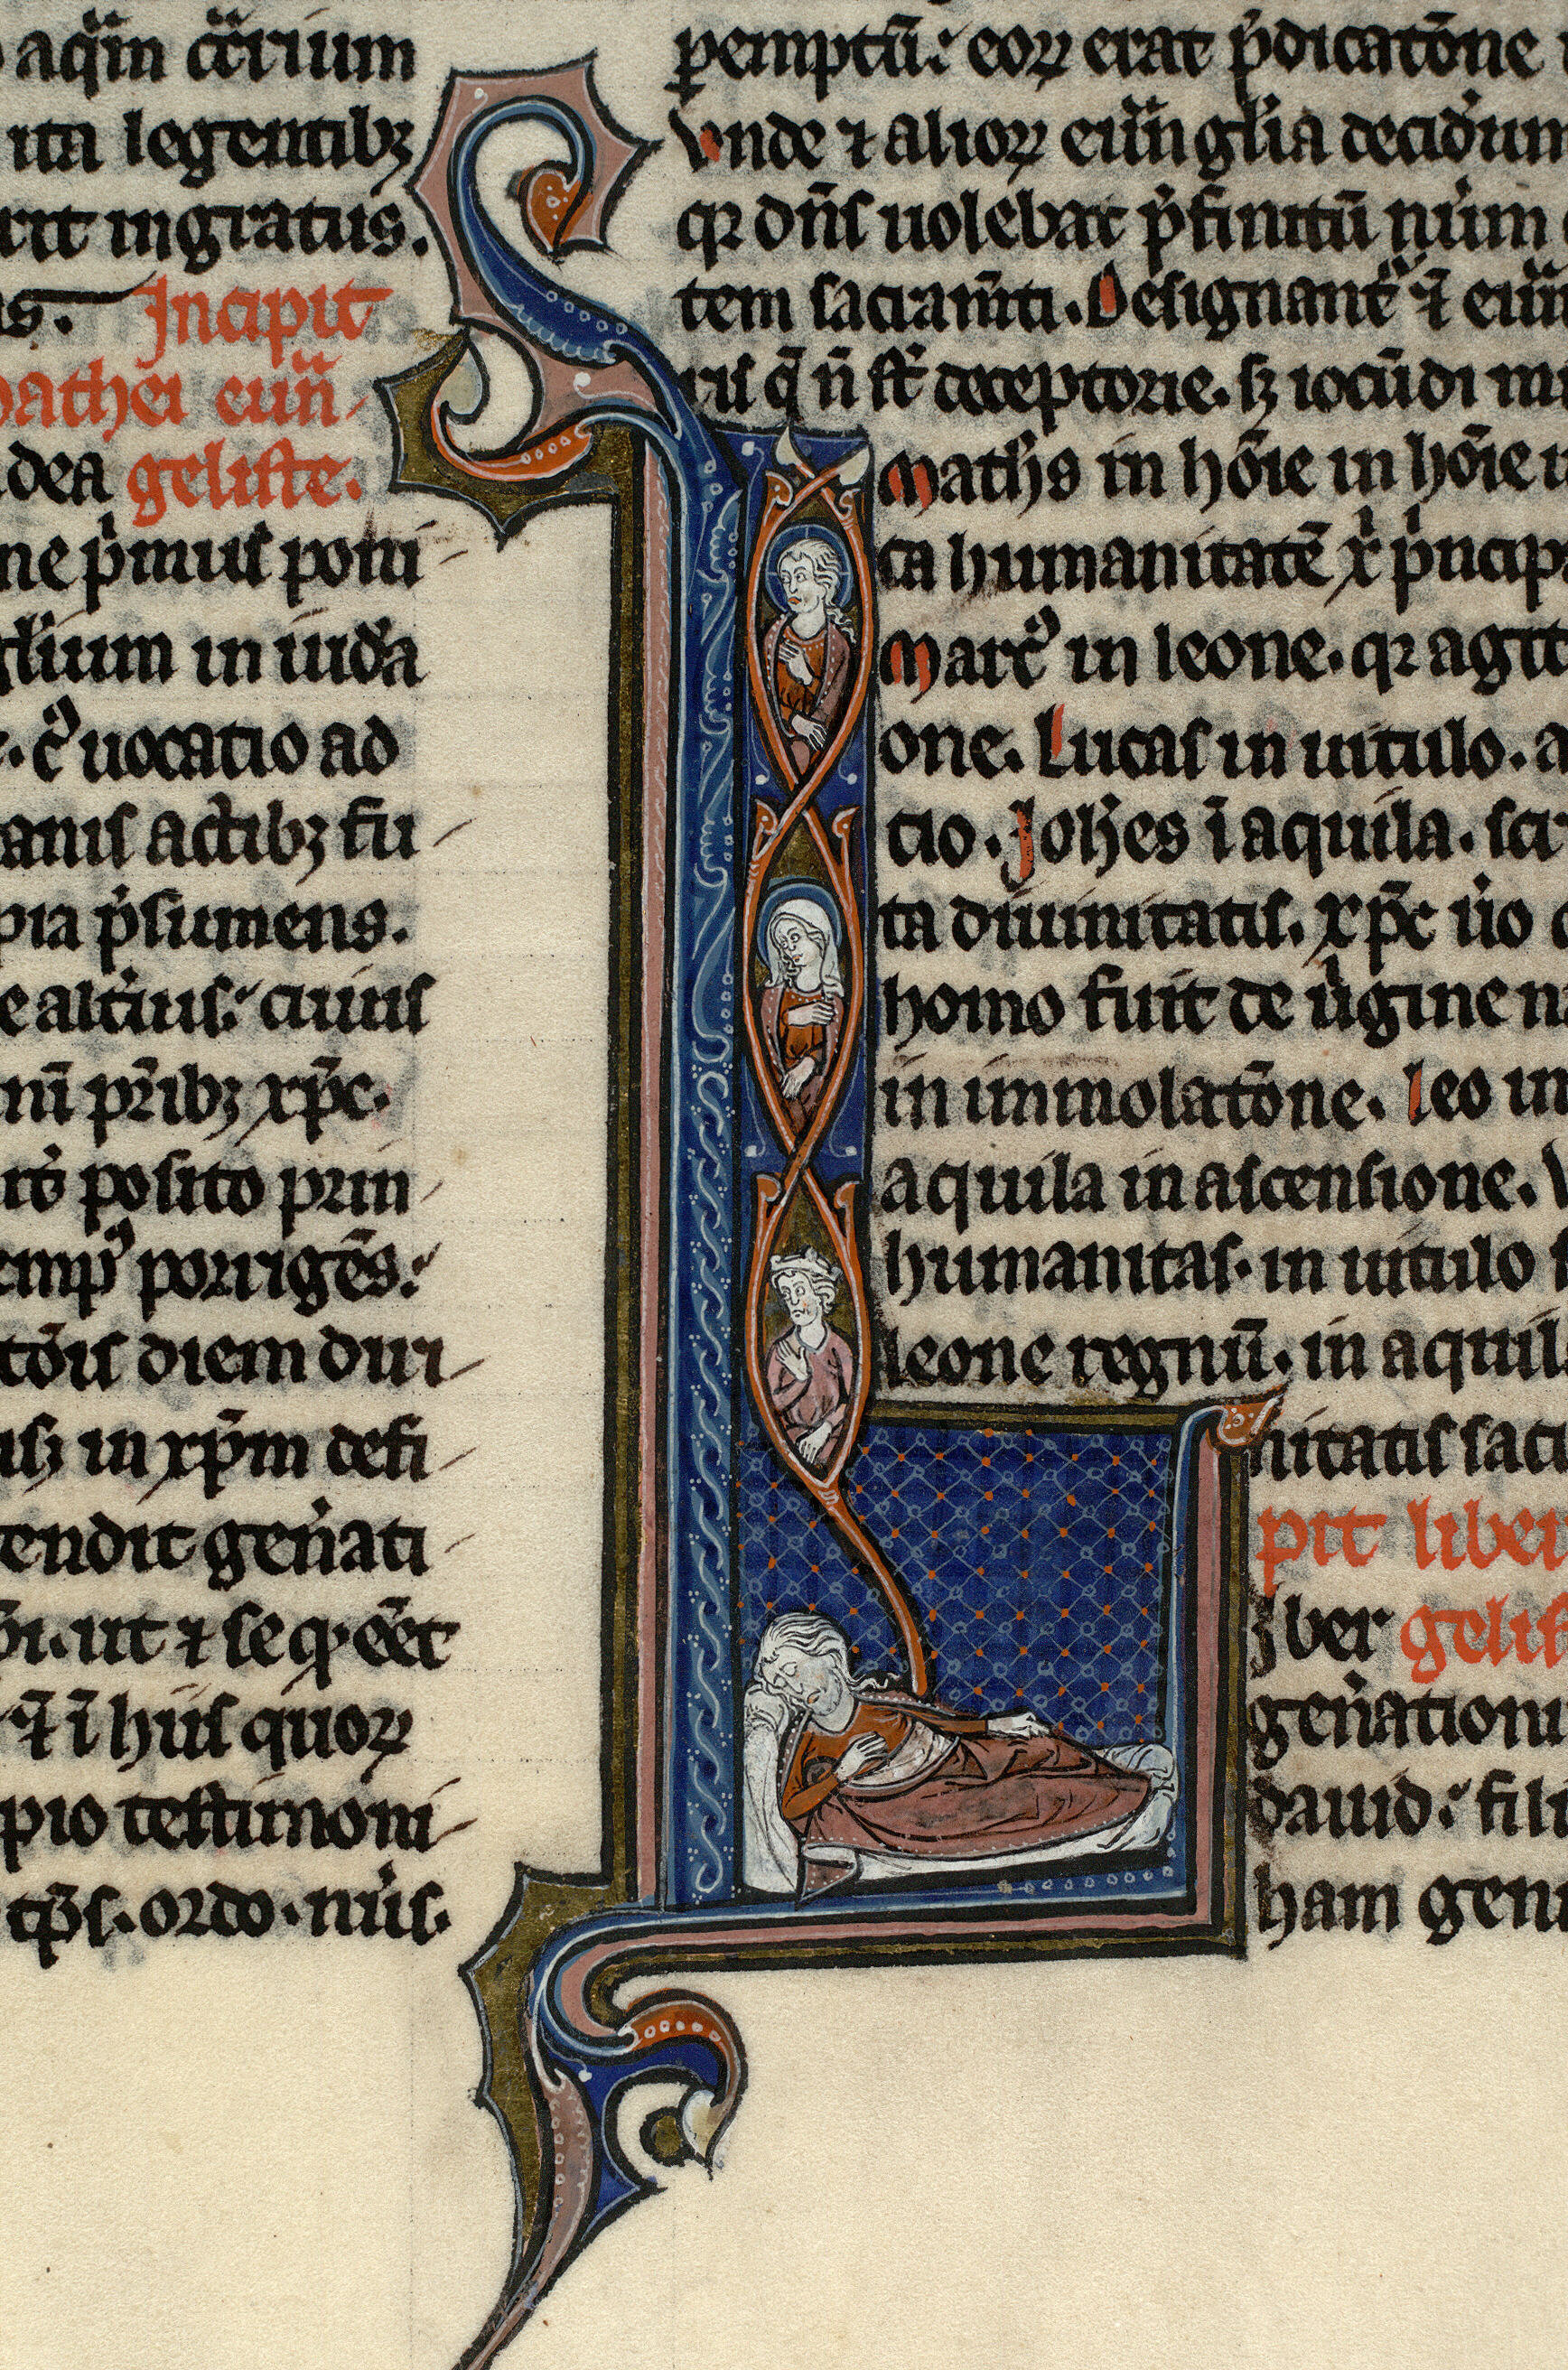 aq̃m c̃trarium
ita legentibꝫ
rit ingratus.
Incipit
mathei euũ
dea geliste.
ne p̾mus poni
glium in iudea
c᷒ uocatio ad
anis actibꝫ fu
pia p̾sumens.
e alt̾ius: cuius
ni pr̃ibꝫ xp̃c.
posito prin
temp᷒ porrigẽs:
tõis diem duri
in xp̃m defi
tendit gen̾ati
ut ⁊ seq̾ ẽet
⁊ ĩ hiis quoꝝ
pio testimoni
tp̃s. ordo. nũs.
pemptũ: eoꝝ erat p̾dicatõne
Vnde ⁊ alioꝝ euũglia decid̾un
qꝛ dñs uolebat p̾finitũ nũm
tem sacram̃ti. Designant᷑ ⁊ ĩ euũ
ris q̃ ñ st̃ deceptorie. sꝫ iocũdi mi
Math̾s in hõie
ca humanitatẽ xp̾i p̾ncip
Marc᷒ in leone. qꝛ agit
one. Lucas in uitulo. a
tio. Joh̃es ĩ aquila. scr
ta diuinitatis. xp̃c ũo
homo fuit de u̾gine n
in immolatõne. leo in
aquila in ascensione. V
humanitas. in uitulo
leone regnũ. in aquila
nitatis sac
pit liber
ber gelis
gen̾ationi
dauid: fili
ham genu